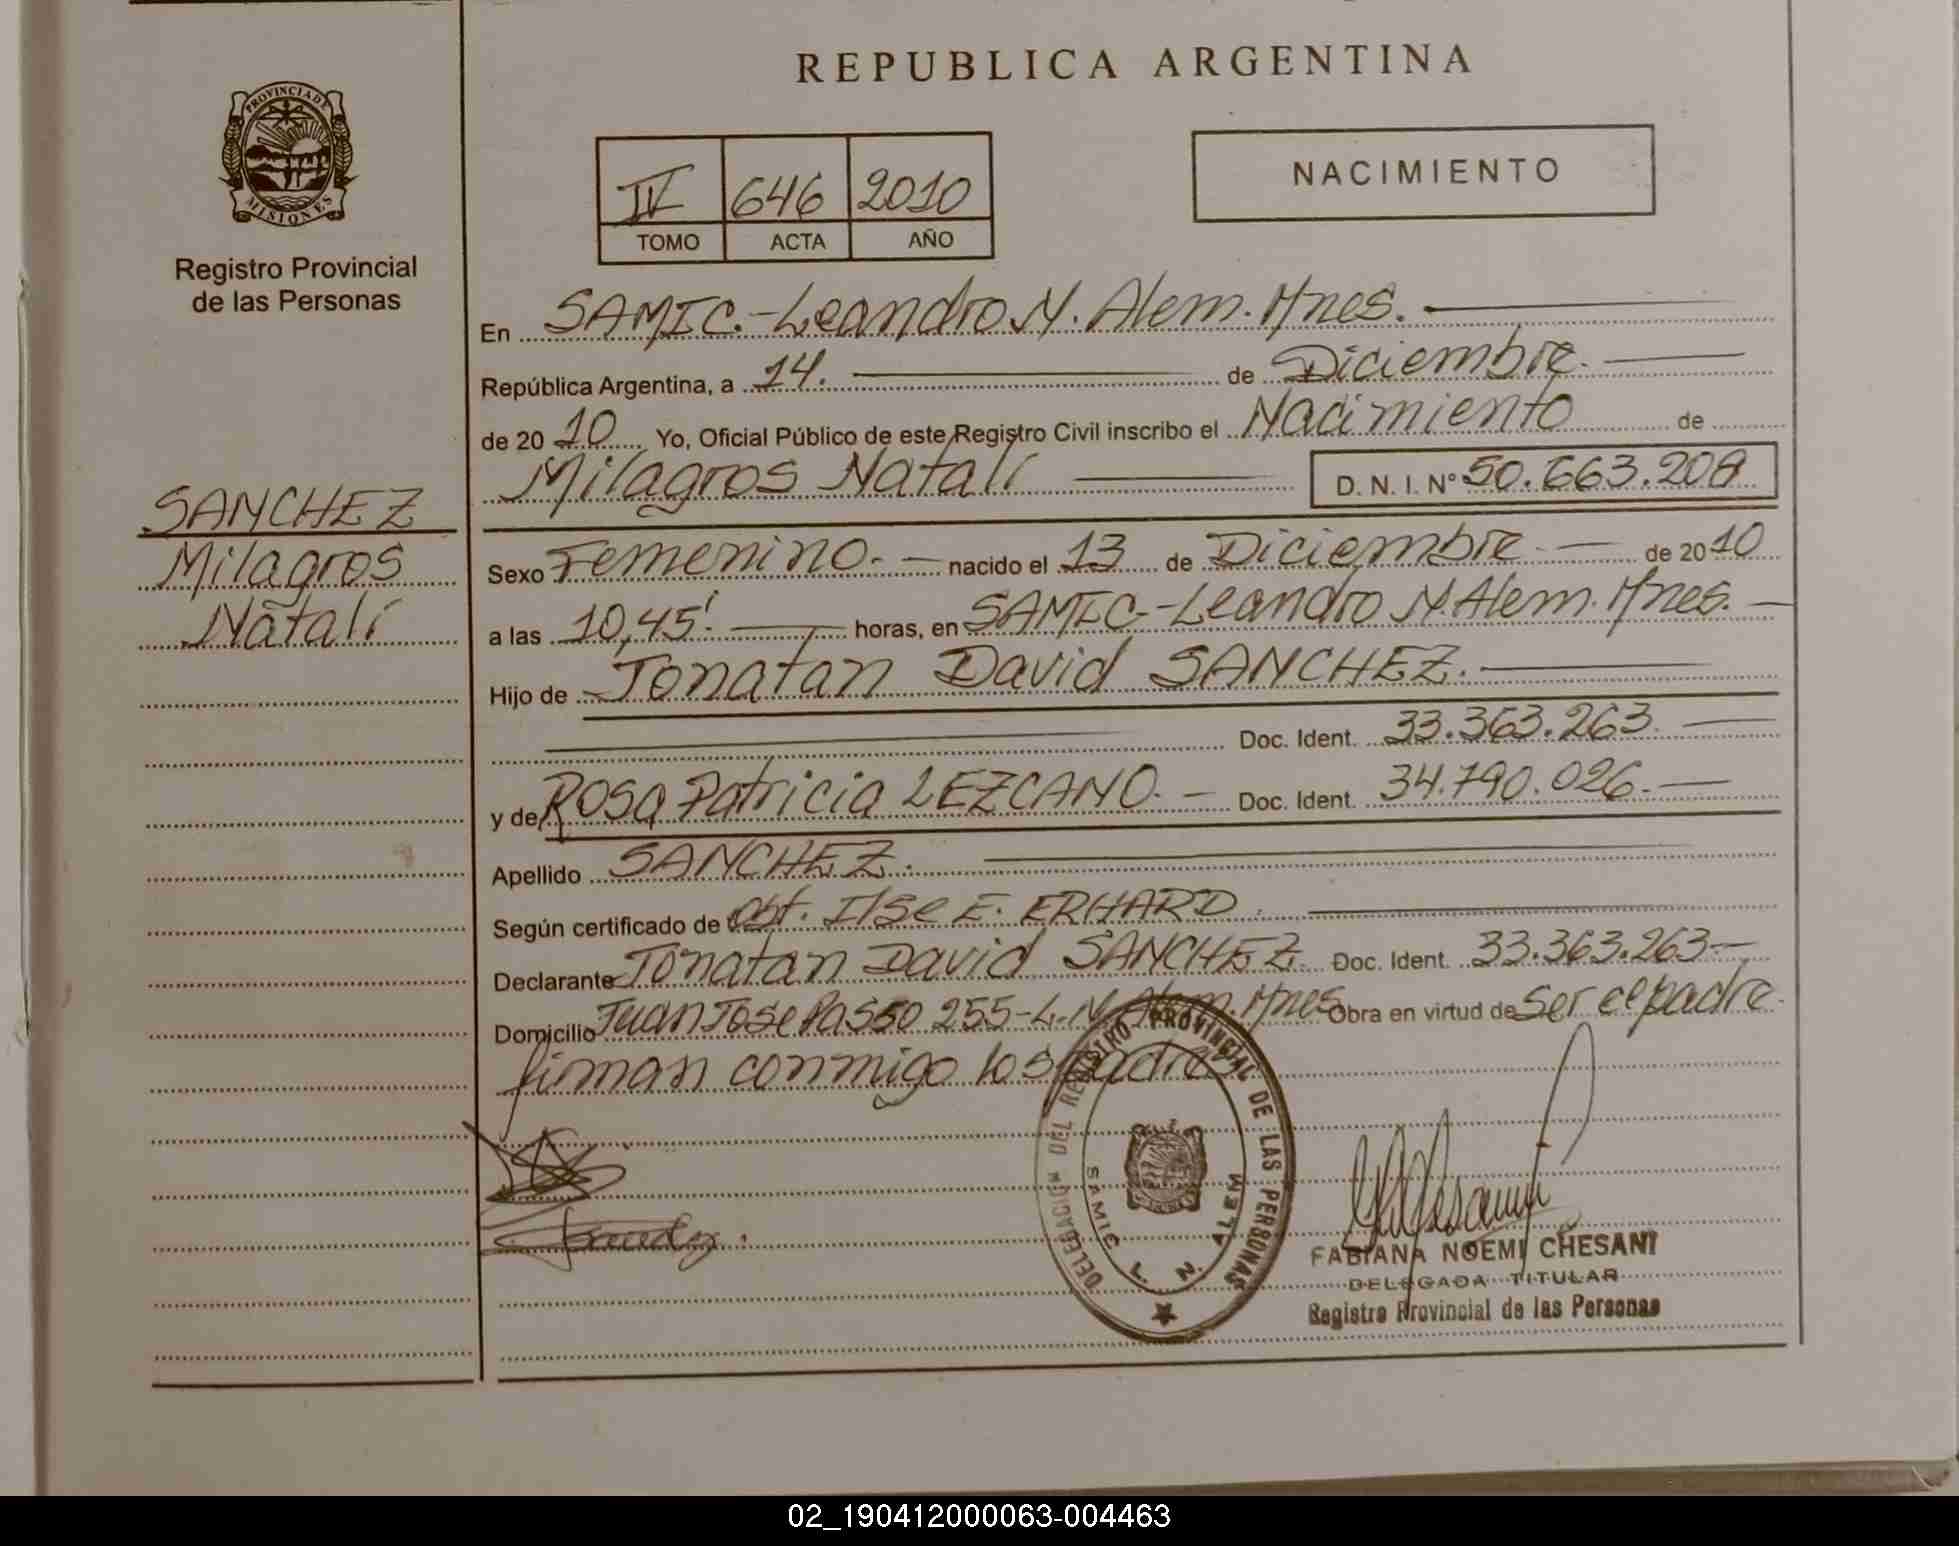 REPUBLICA ARGENTINA
PROVINCIA DE
MISIONES
Registro Provincial
de las Personas
IV 646 2010
TOMO ACTA AÑO
NACIMIENTO
En SAMIC.-Leandro N. Alem. Mnes.
República Argentina, a 14. de Diciembre.
de 20 10 Yo, Oficial Público de este Registro Civil inscribo el Nacimiento de
Milagros Natalí D. N. I. N° 50.663.208
SANCHEZ
Milagros
Natalí
Sexo Femenino.- nacido el 13 de Diciembre.- de 20 10
a las 10,45'. horas, en SAMIC.-Leandro N. Alem. Mnes.
Hijo de Jonatan David SANCHEZ.
Doc. Ident. 33.363.263.
y de Rosa Patricia LEZCANO.- Doc. Ident. 34.790.026.-
Apellido SANCHEZ.
Según certificado de Obt. Ilse E. ERHARD.
Declarante Jonatan David SANCHEZ. Doc. Ident. 33.363.263.-
Domicilio Juan Jose Passo 255-L.N. Alem. Mnes. Obra en virtud de Ser el padre.
firman conmigo los padres
DELEGACION DEL REGISTRO PROVINCIAL DE LAS PERSONAS
SAMIC L. N. ALEM
FABIANA NOEMI CHESANI
DELEGADA TITULAR
Registro Provincial de las Personas
02_190412000063-004463